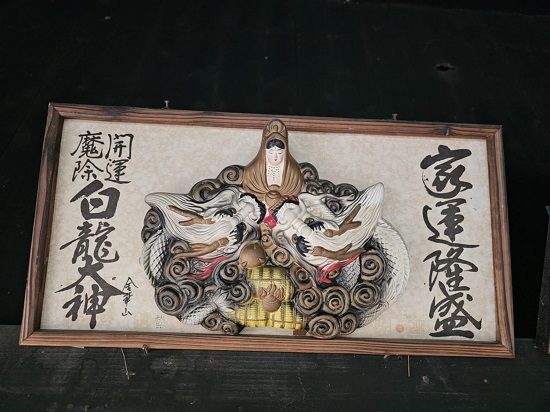 家運隆盛
開運
魔除
白龍大神
金華山